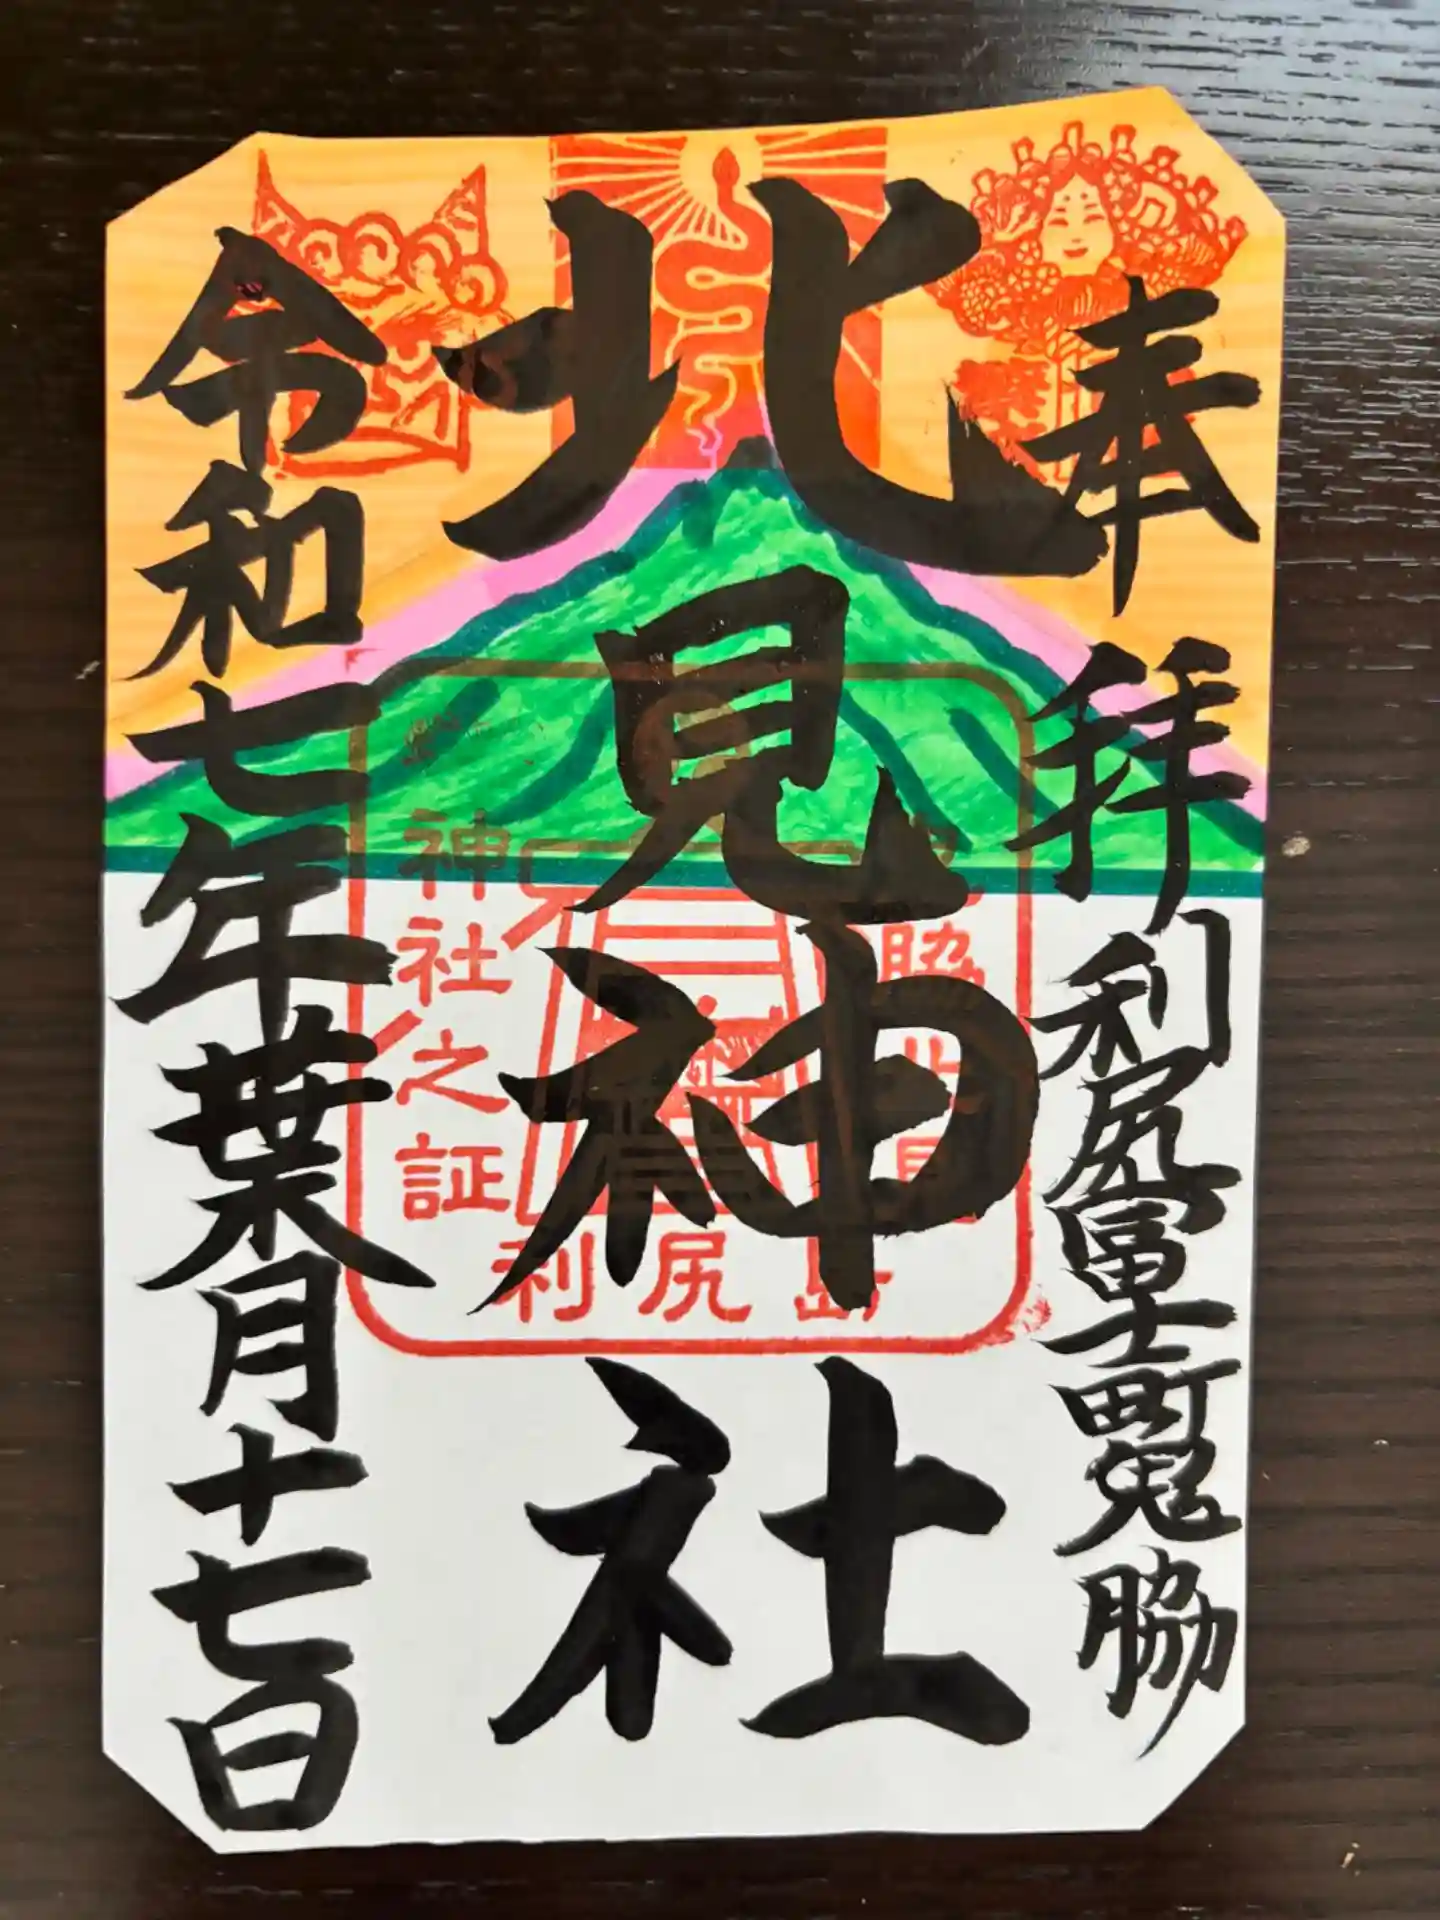 奉拝
利尻富士町鬼脇
北見神社
令和七年葉月十七日
脇北見
神社之証
利尻島